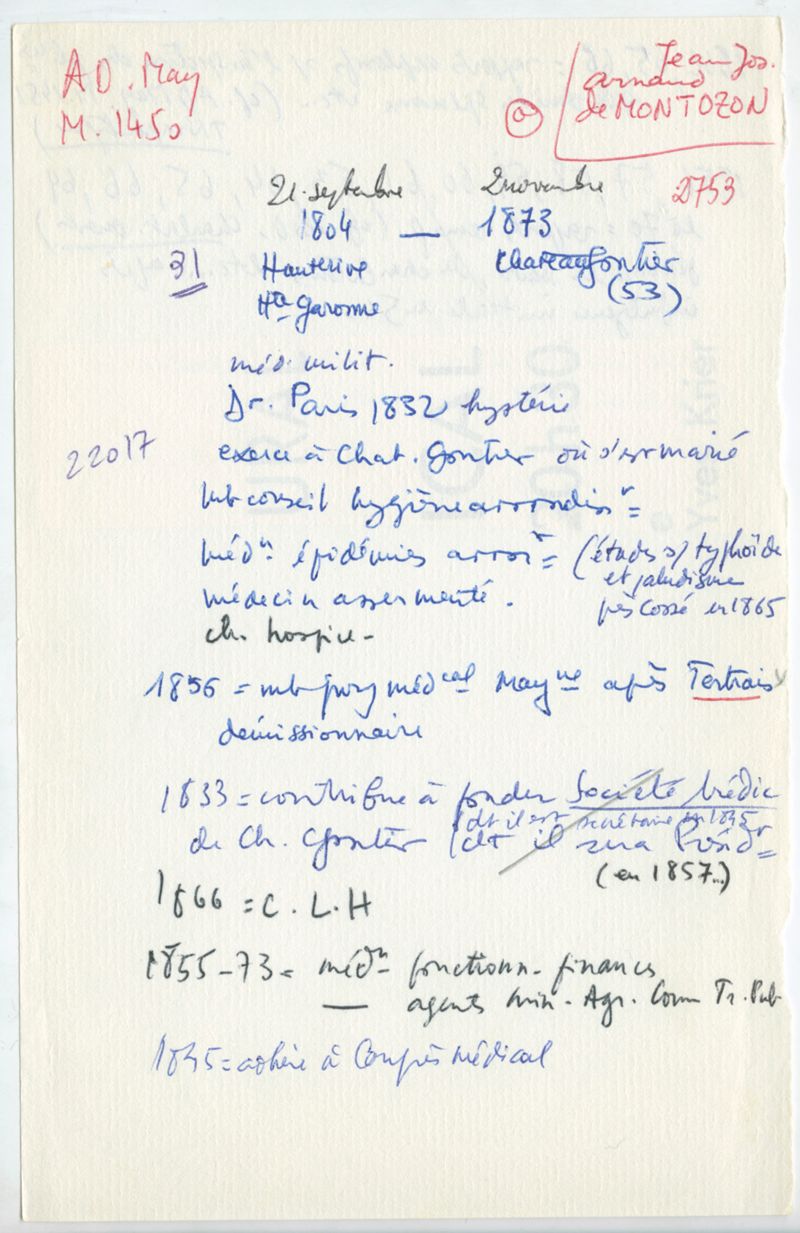 A.D. May
M. 1450
Jean Jos.
arnaud
de MONTOZON
21 septembre
2 novembre
2753
1804 — 1873
31
Hauterive
Chateaugontier
Hte Garonne
(53)
méd. milit.
Dr. Paris 1832 hystérie
22017
exerce à Chat. Gontier où s'est marié
mb conseil hygiène arrondist
médn épidémies arrort (études s/ typhoïde
et paludisme
médecin assermenté.
près Cossé en 1865
ch. hospice -
1856 = mb jury médcal Mayne après Tertrais
démissionnaire
1833 = contribue à fonder Société Médic
(dt il est secrétaire en 1845
de Ch. Gontier (dt il sera Présidt
(en 1857...)
1866 = C.L.H
1855-73 = médn fonctionn. finances
— agents min. Agr. Comm Tr. Pub
1845 = adhère à Congrès médical